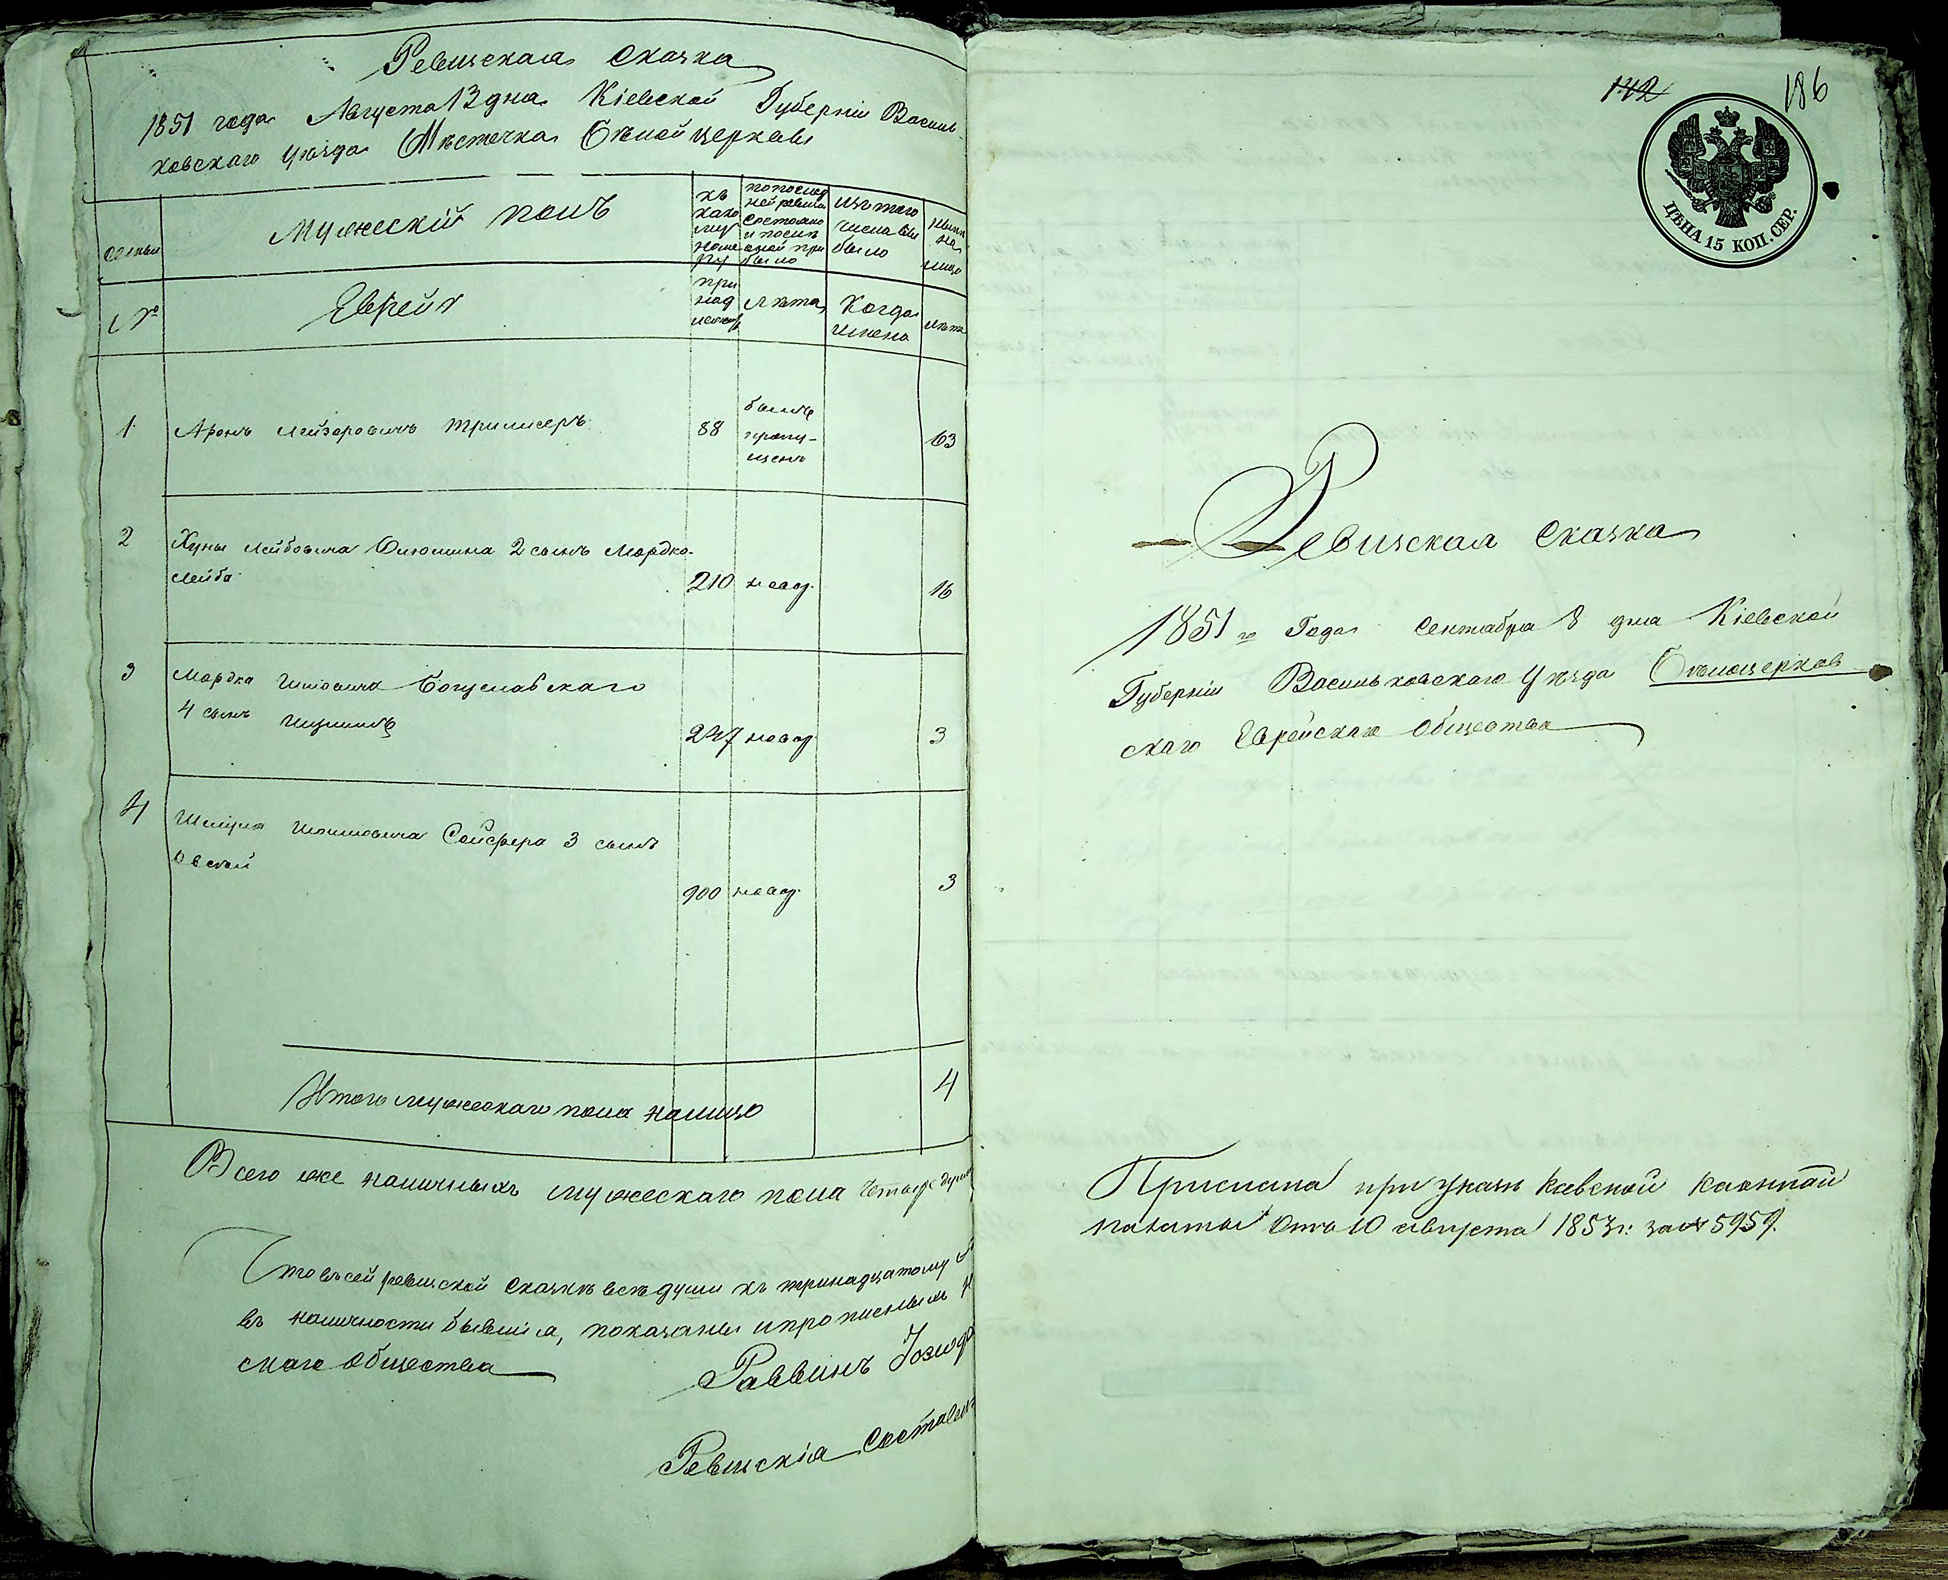 Ревизская Сказка
1851 года Августа 13 дня Кіевской Губерніи Василь
ковскаго уѣзда Мѣстечка Бѣлой церкви
семьи
Мужескій полъ
къ какому номеру
по послѣдней ревизіи состояло и послѣ оной прибыло
изъ того числа выбыло
нынѣ на лицо
№
Еврей
принадлежитъ
лѣта
Когда именно
лѣта
1 Аронъ Лейзоровичъ Триллеръ 88 былъ пропу-
щенъ 63
2 Хуны Лейбовича 2 сынъ Мордко-
Лейба 210 новор. 16
3 Мордка Ициовича Богуславскаго
4 сынъ 247 новор. 3
4 Шмуля Сойфера 3 сынъ
Овсей 900 новор. 3
Итого мужескаго пола налицо 4
Всего же наличныхъ мужескаго пола четыре души
Что въ сей ревизской сказкѣ всѣ души къ тринадцатому
въ наличности бывшія, показаны и прописныхъ
скаго общества
Раввинъ
Ревизскія Составл
142 186
ЦѢНА 15 КОП. СЕР.
Ревизская Сказка
1851 го Года Сентября 8 дня Кіевской
Губерніи Васильковскаго Уѣзда Бѣлоцерков
скаго Еврейскаго Общества
Прислана при указѣ Кіевской Казенной
палаты отъ 10 августа 1853 г: за № 5959.